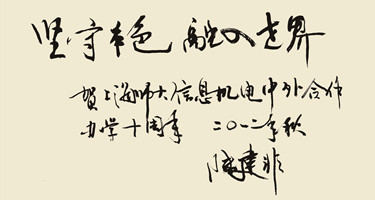 坚守本色 融入世界
贺上海师大信息机电中外合作
办学十周年 二〇一二年秋
陆建非